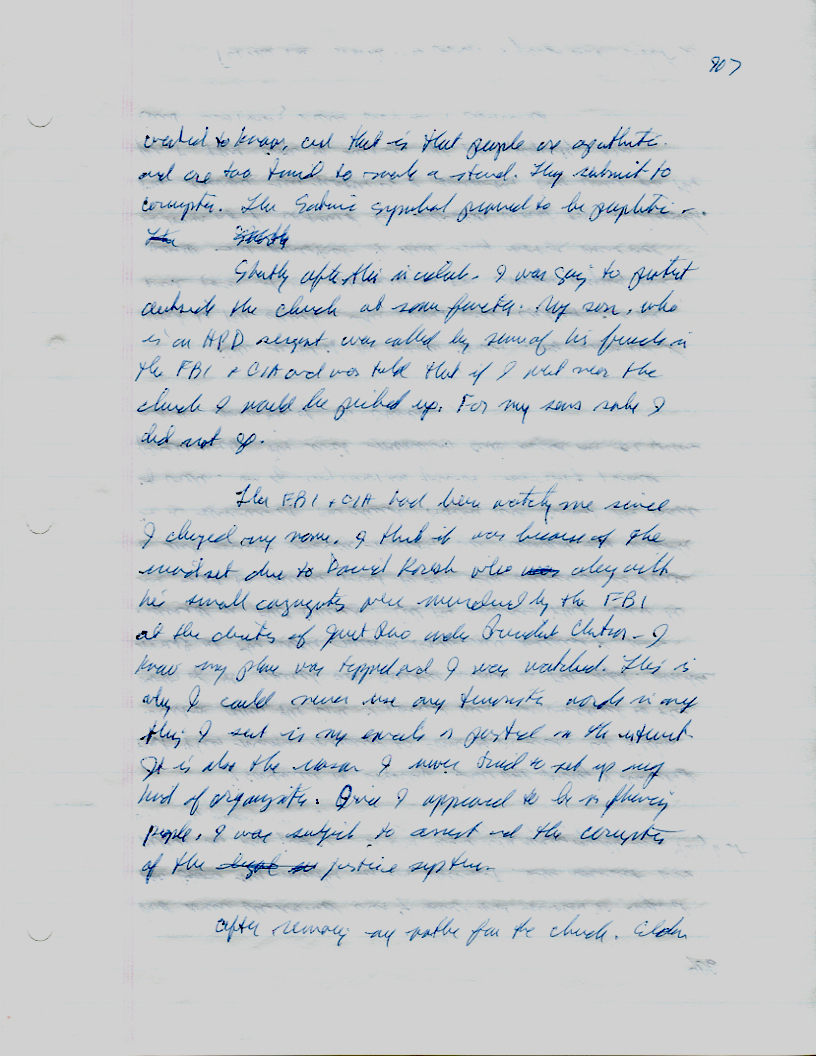 907
needed to know, and that is that people are apathetic
and are too timid to make a stand. They submit to
corruption. The Satanic symbol proved to be prophetic -.
The
Shortly after this incident - I was going to protest
outside the church at some function. My son, who
is an HPD sergeant was called by some of his friends in
the FBI + CIA and was told that if I went near the
church I would be picked up. For my sons sake I
did not go.
The FBI + CIA had been watching me since
I changed my name. I think it was because of the
mindset due to David Koresh who was along with
his small congregation were murdered by the FBI
at the of Janet Reno under President Clinton - I
know my phone was tapped and I was watched. This is
why I could never use any terroristic words in any
thing I sent in my emails or posted on the internet.
It is also the reason I never tried to set up any
kind of organization. Once I appeared to be influencing
people, I was subject to arrest and the corruption
of the legal justice system.
after removing my mother from the church. Elder